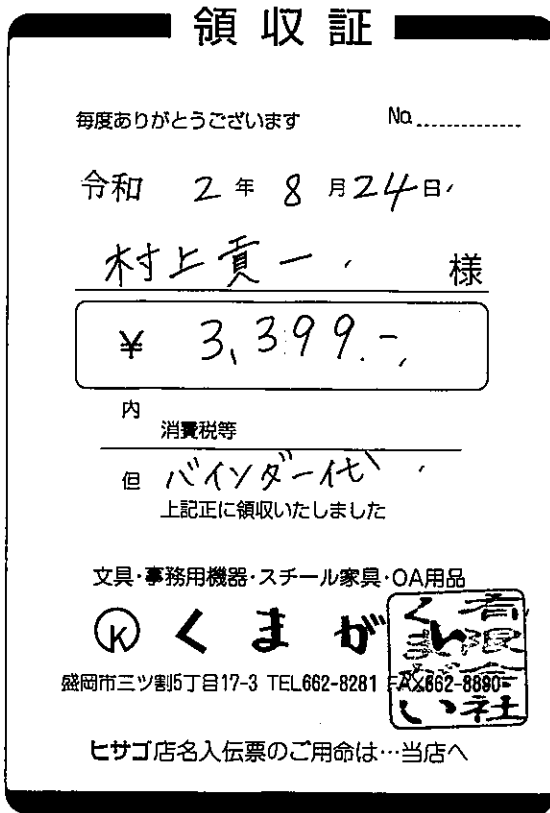 領収証
毎度ありがとうございます No.
令和 2年 8月24日
村上貢一 様
¥ 3,399.-
内
消費税等
但 バインダー代
上記正に領収いたしました
文具・事務用機器・スチール家具・OA用品
K くまがい
有限会社くまがい
盛岡市三ツ割5丁目17-3 TEL662-8281 FAX662-8890
ヒサゴ店名入伝票のご用命は…当店へ